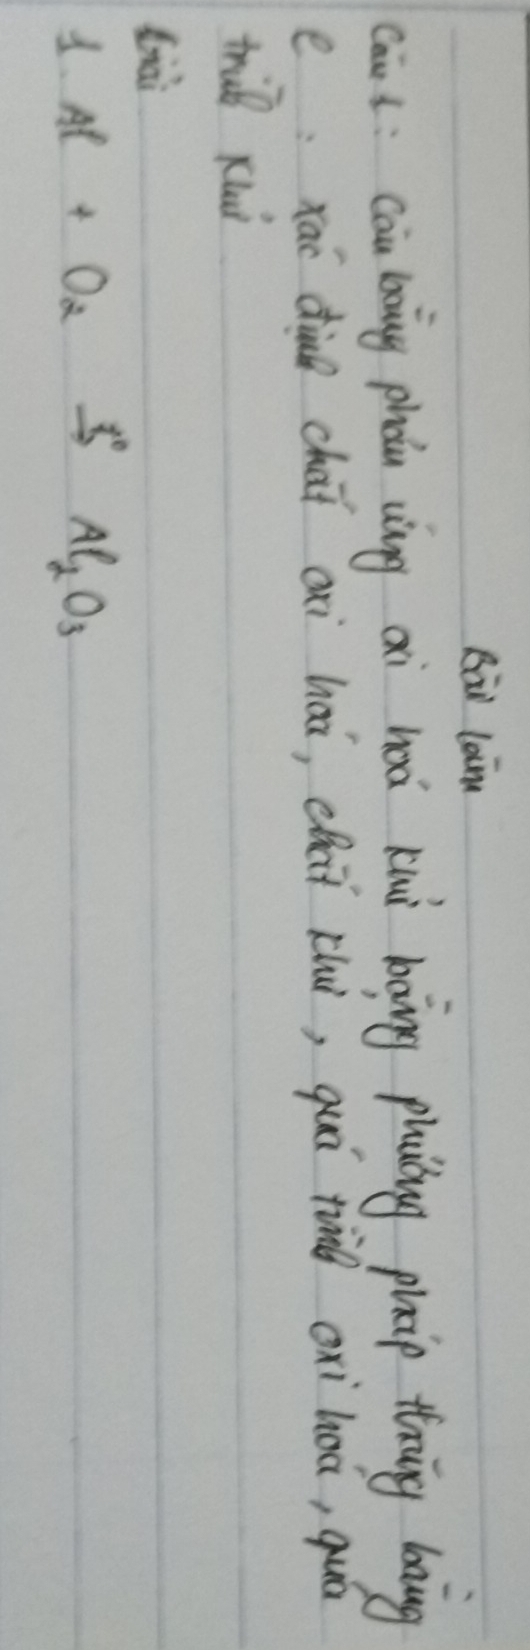 Bài làm
Câu 1: Cân bằng phản ứng oxi hoá khử bằng phương pháp thăng bằng
e : xác định chất oxi hoá, chất khử, quá trình oxi hoá, quá
trình khử
Giải
1. Al + O₂ →t° Al₂O₃